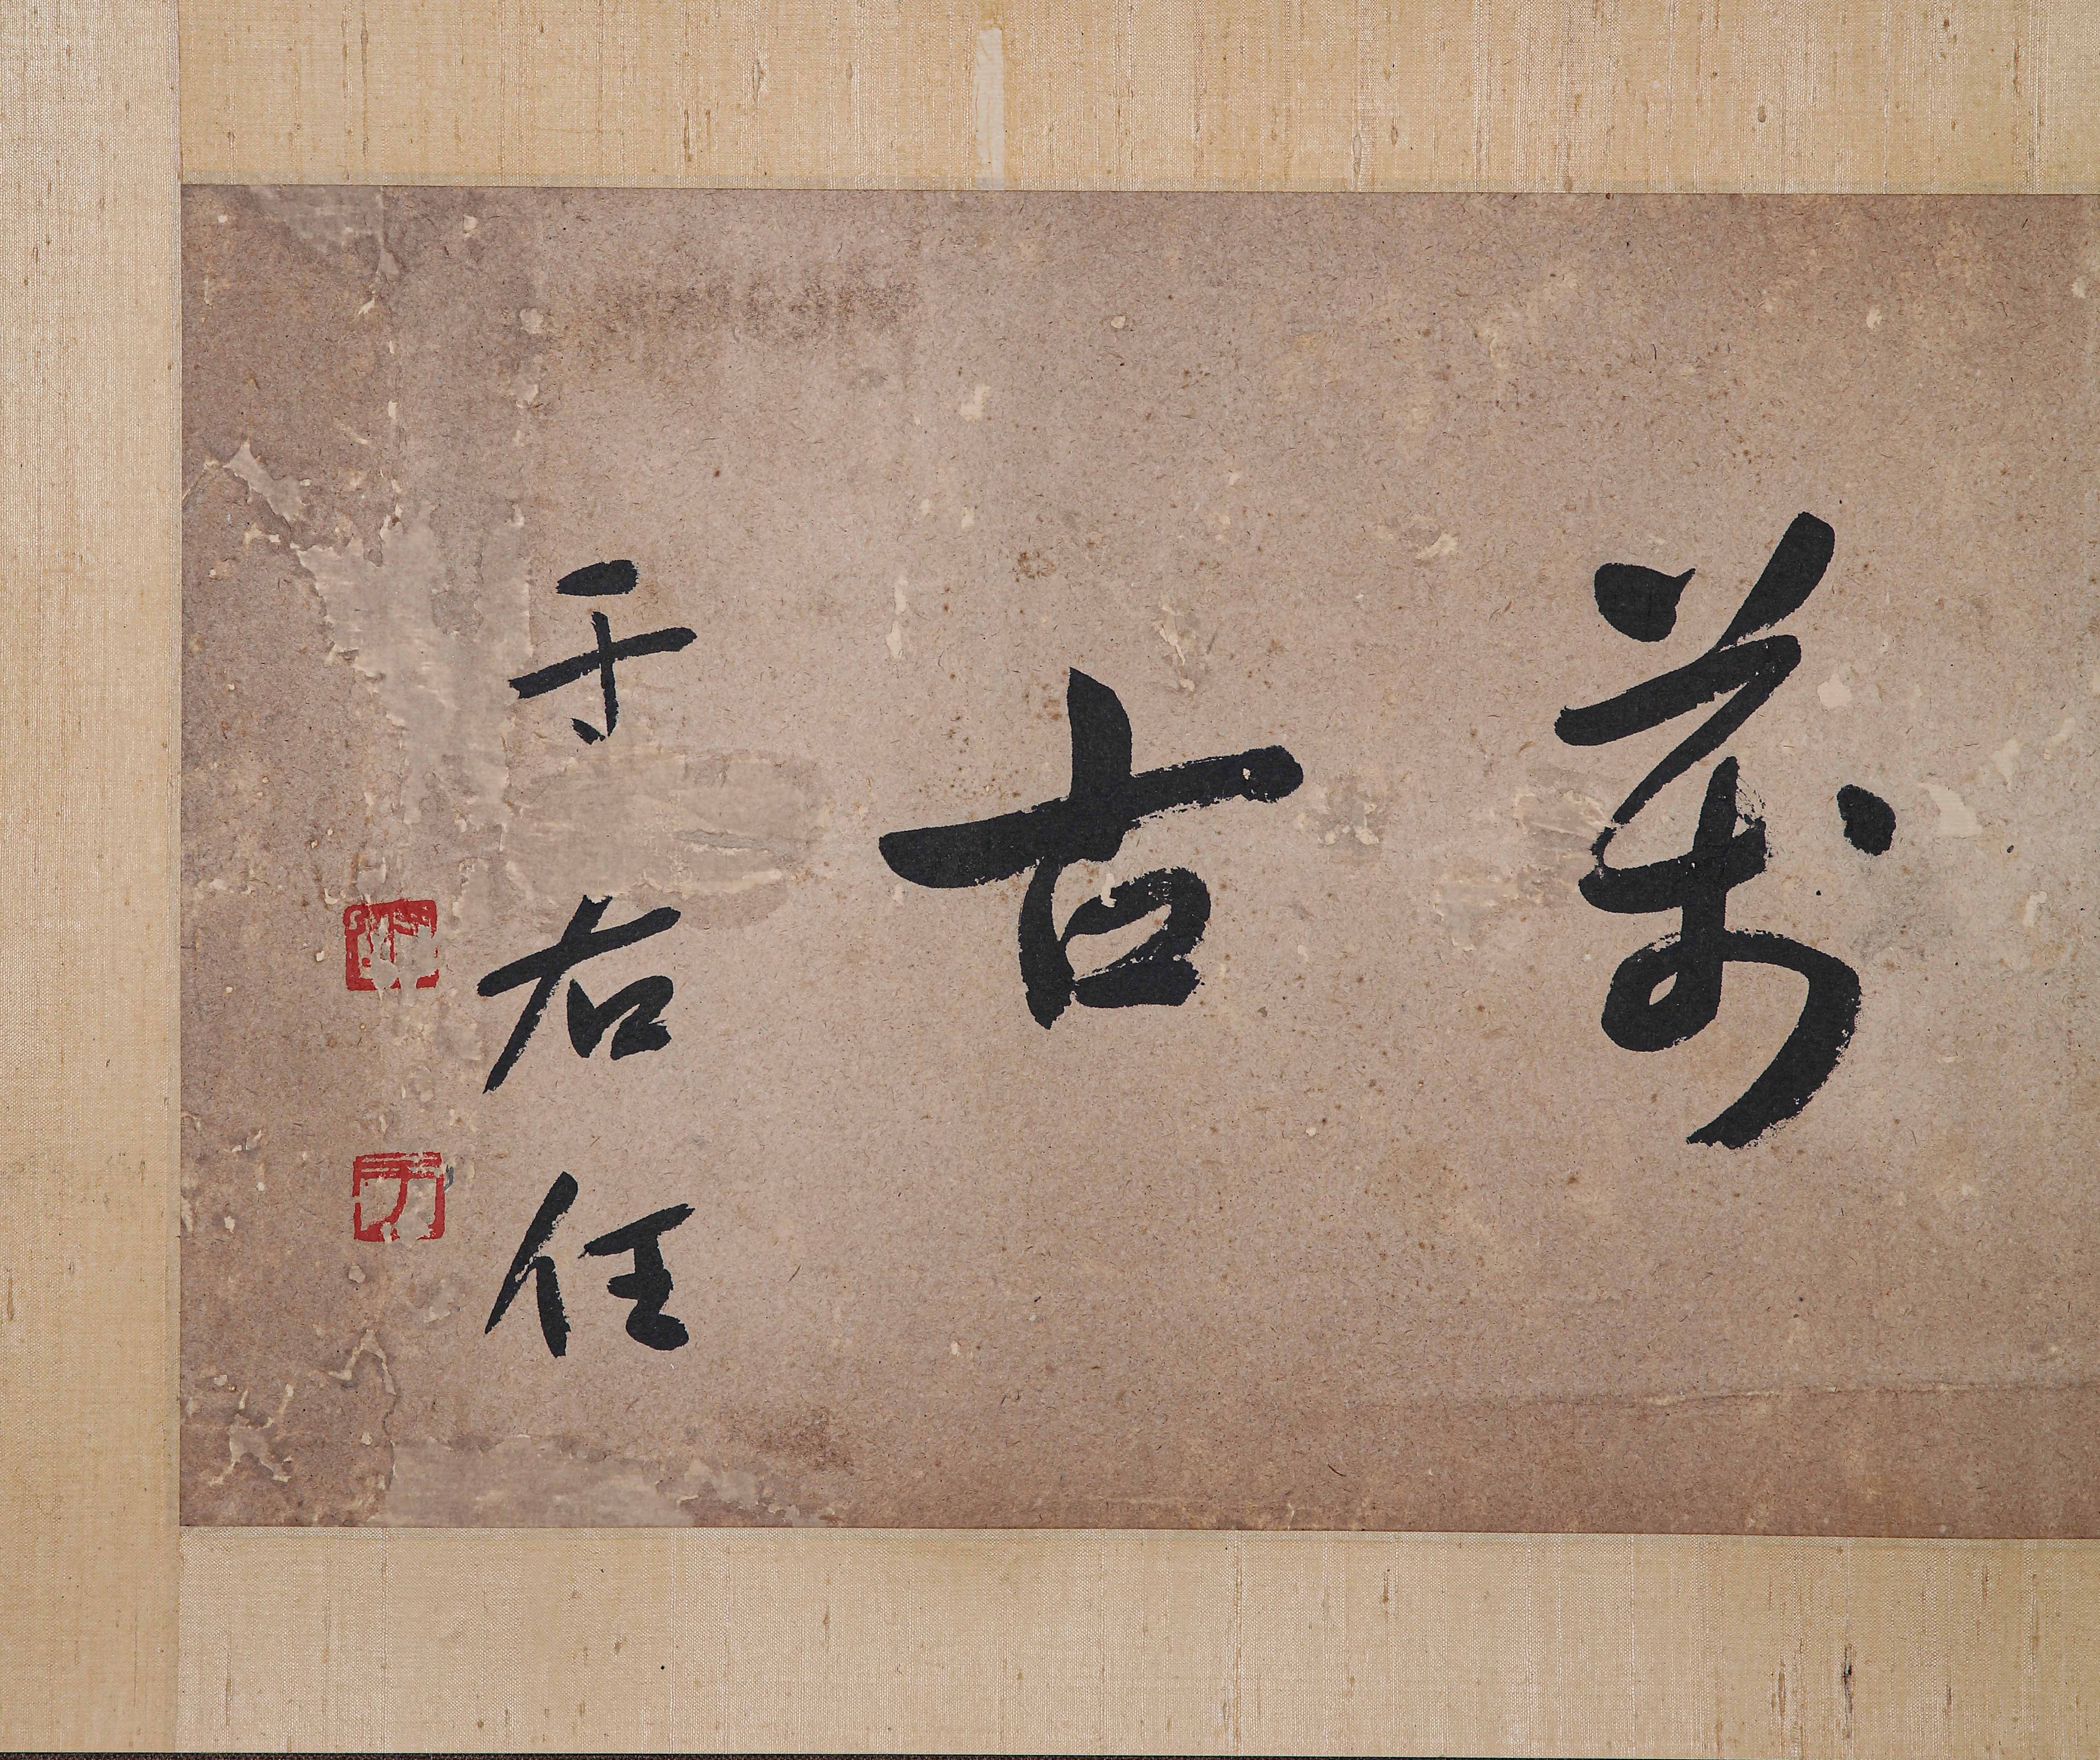 萬古
于右任